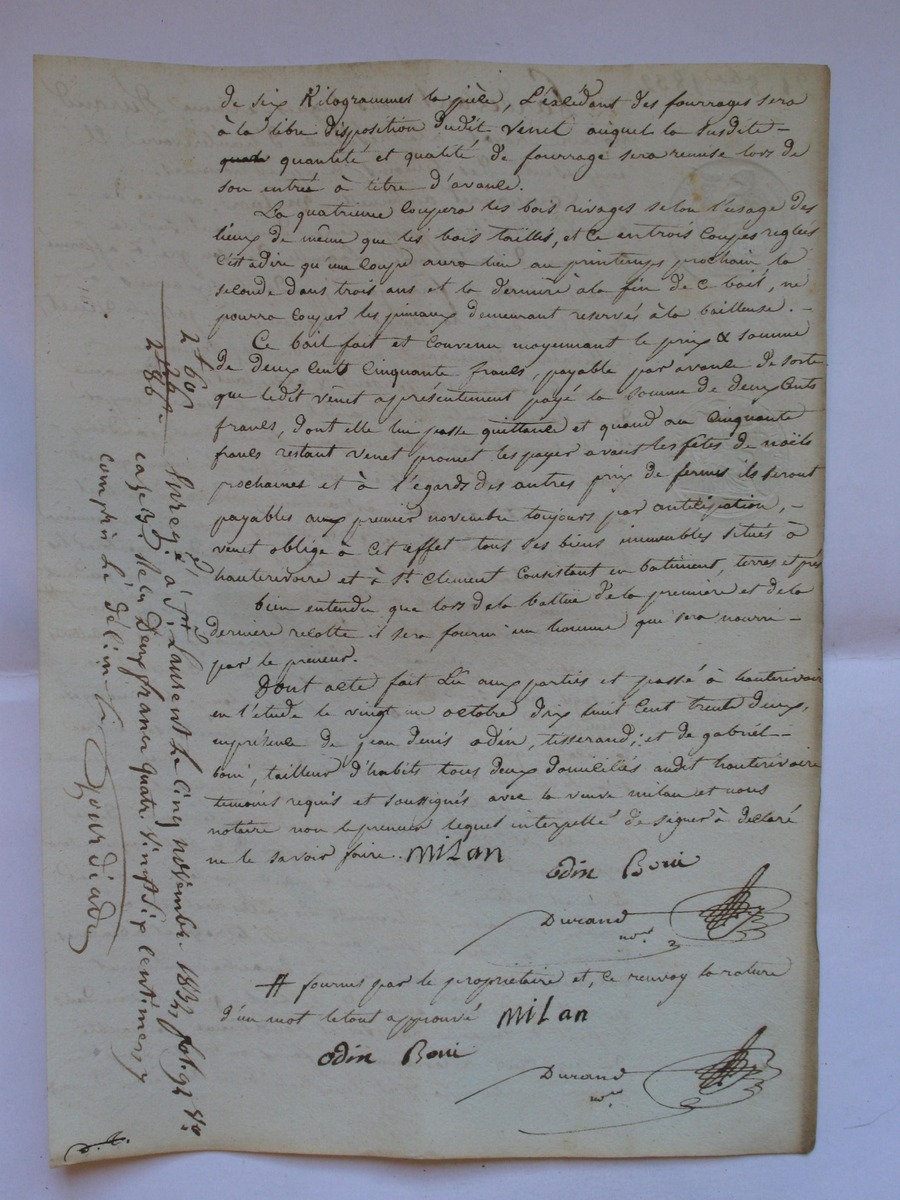 de six Kilogrammes la pièce, L'excédant des fourrages sera
à la libre disposition dudit venet auquel la susdite
quantité et qualité de fourrage sera remise lors de
son entrée à titre d'avance.
La quatrieme coupera les bois rivages selon l'usage des
lieux de même que les bois taillis, et ce en trois coupes reglées
c'est adire qu'une coupe aura lieu au printemps prochain la
seconde dans trois ans et la derniere à la fin de ce bail, ne
pourra couper les pineaux demeurant reservés à la bailleuse. -
Ce bail fait et convenu moyennant le prix & somme
de deux cent cinquante francs, payable par avance de sorte
que ledit venet a présentement payé la somme de deux cents
francs, dont elle lui passe quittance et quand au cinquante
francs restant venet promet les payer avant les fêtes de noëls
prochaines et à l'égards des autres prix de fermes ils seront
payables aux premier novembre toujours par anticipation, -
venet oblige à cet effet tous ses biens immeubles situés à
hauterivoire et à St Clement Consistant en batiment, terres et prés
bien entendu que lors de la battue de la premiere et de la
derniere recolte il sera fourni un homme # qui sera nourri -
par le preneur.
Dont acte fait Lu aux parties et passé à hauterivoire
en l'étude le vingt un octobre dix huit cent trente deux,
en présence de jean denis odin, tisserand, et de gabriel -
boni, tailleur d'habits tous deux domiciliés audit hauterivoire
temoins requis et soussignés avec la veuve milan et nous
notaire non le preneur lequel interpellé de signer à déclaré
ne le savoir faire. Milan
odin Boni
Durand
nore
# fournis par le propriétaire et, ce renvoy la rature
d'un mot le tout approuvé Milan
odin Boni
Durand
nore
2f 60c
26
2f 86
Enregé à St Laurent Le Cinq novembre 1832, fol. 92 vo
case 3 Reçu Deux francs quatre vingt six centimes y
compris Le décime